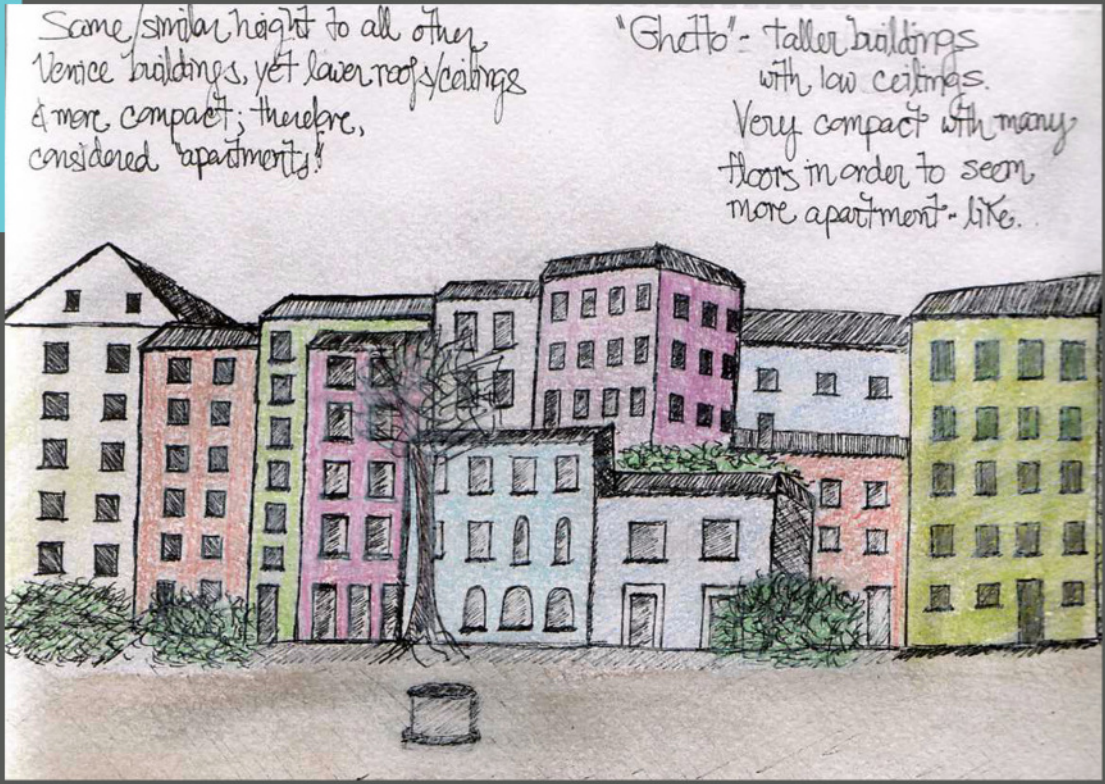 Same/similar height to all other
Venice buildings, yet lower roofs/ceilings
& more compact; therefore,
considered "apartments!"
"Ghetto" - taller buildings
with low ceilings.
Very compact with many
floors in order to seem
more apartment-like..